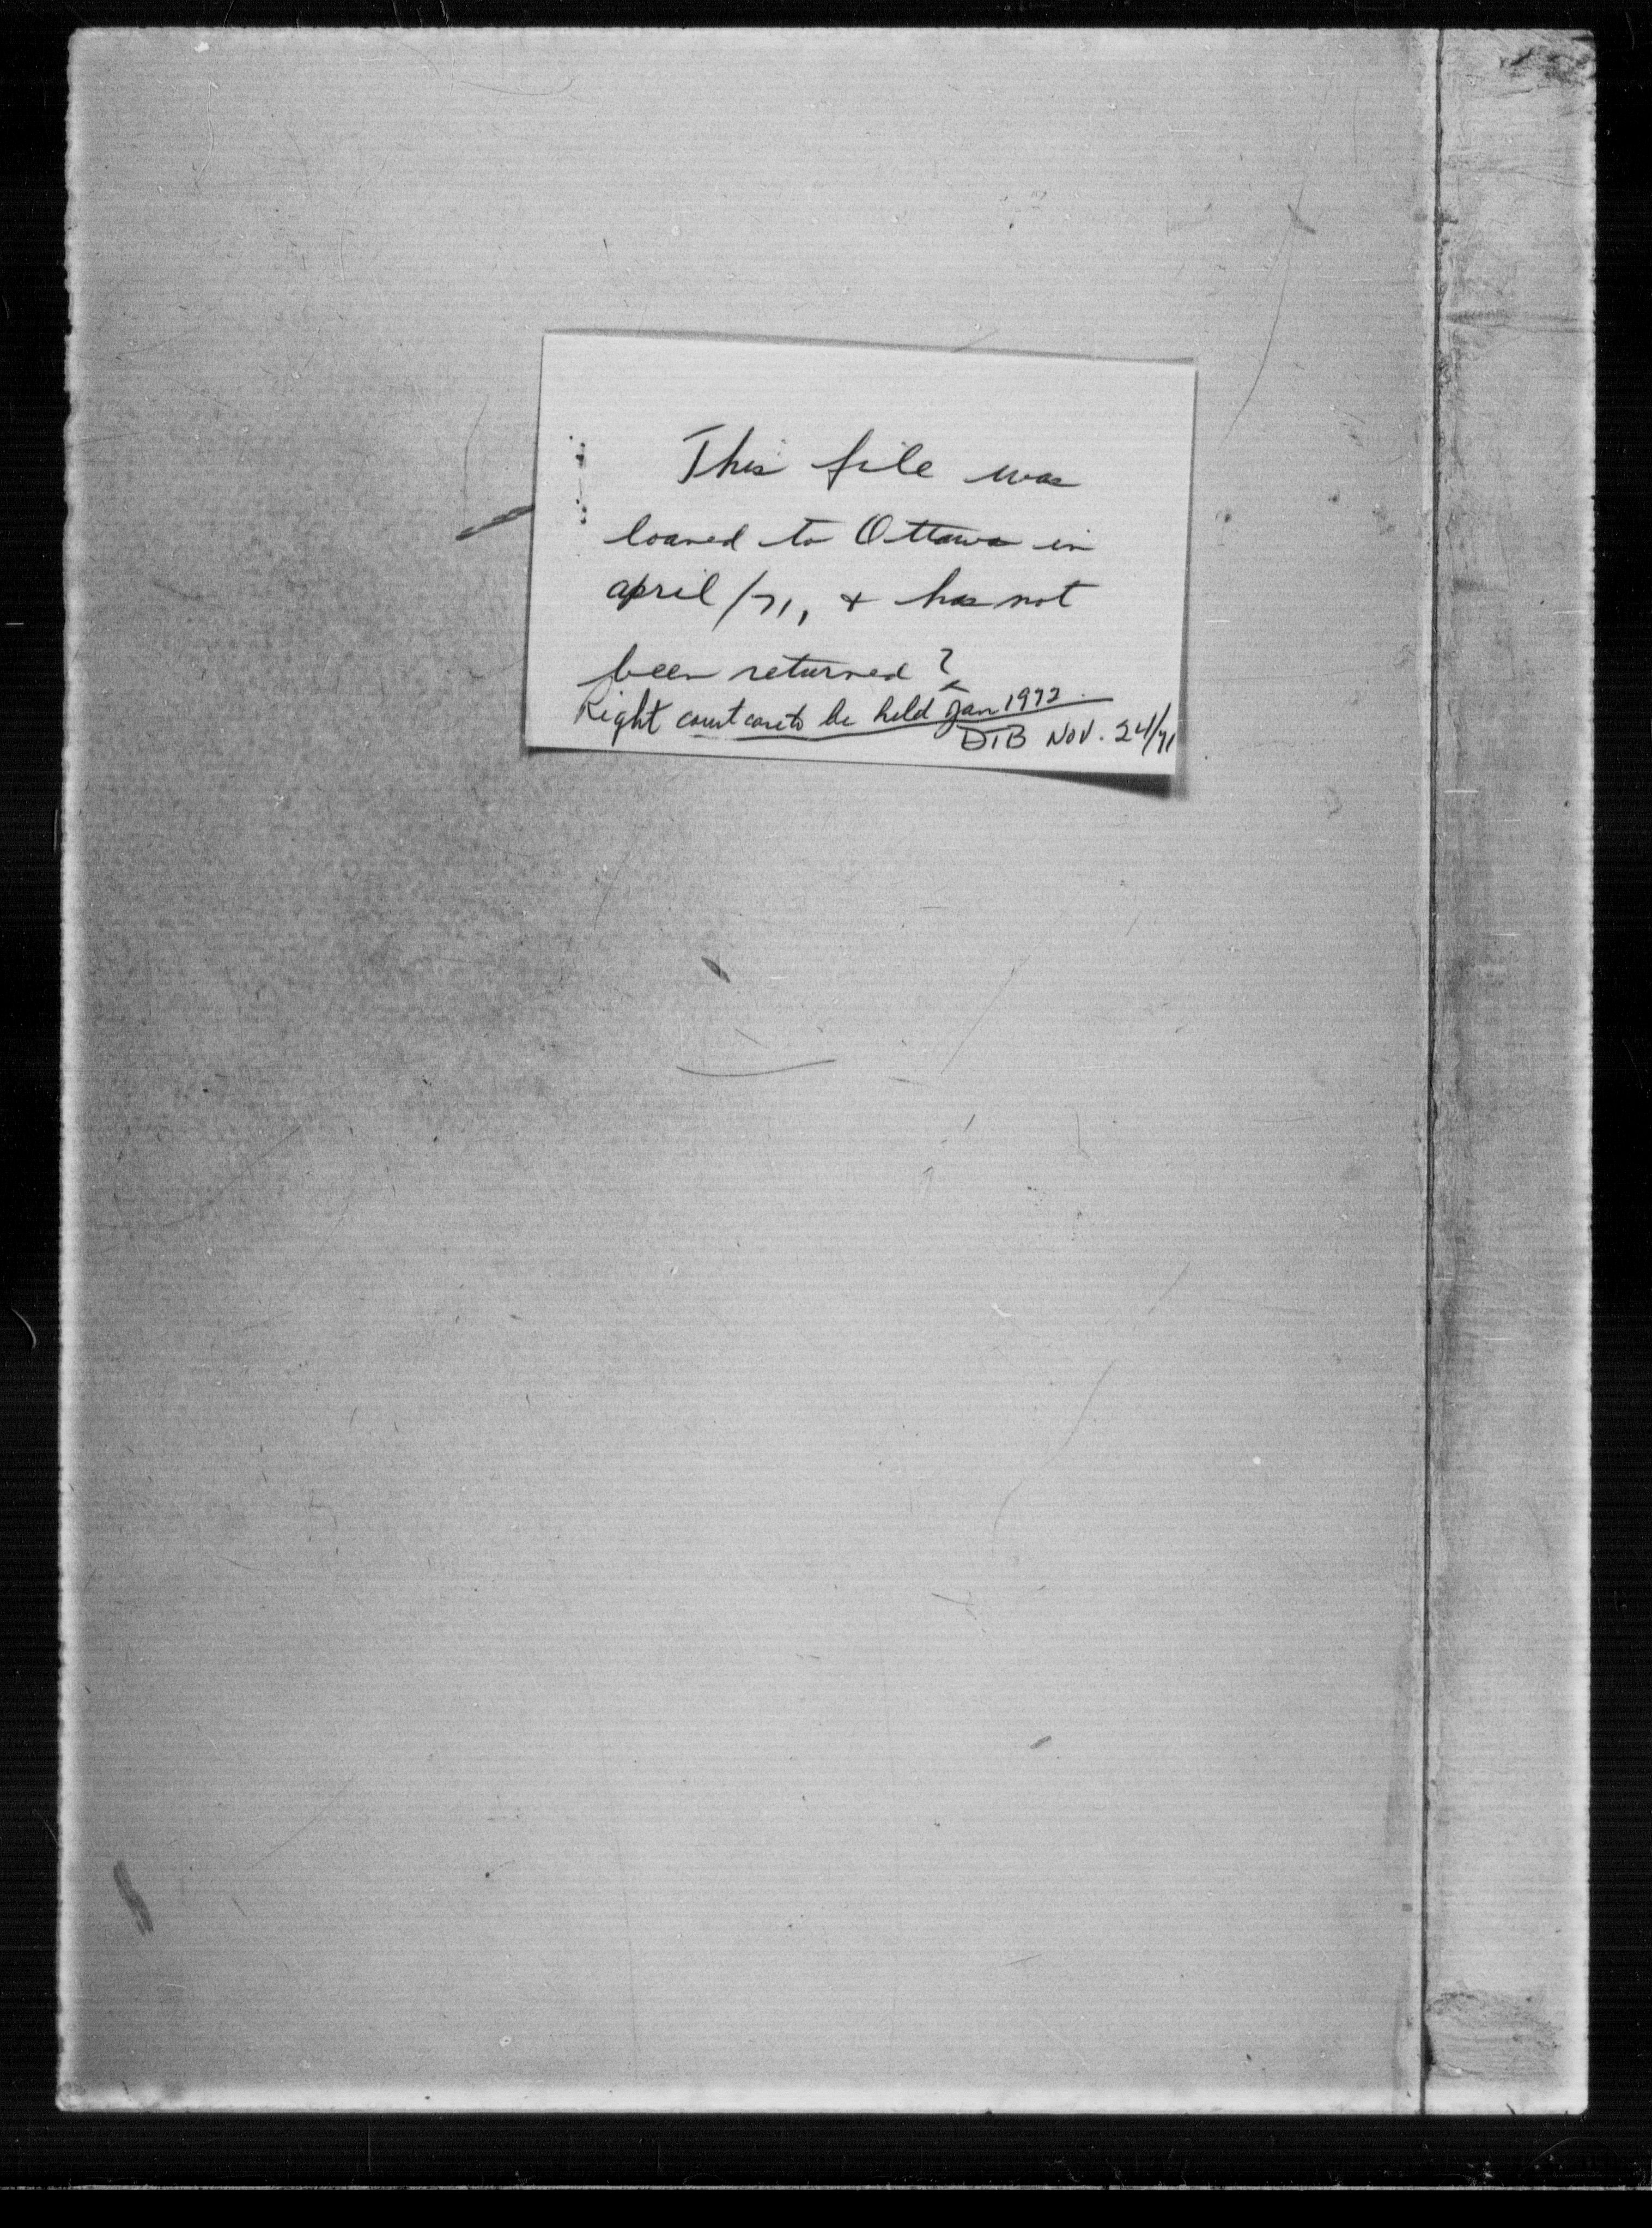 This file was
loaned to Ottawa in
april/71, + has not
been returned?
Right court case to be held Jan 1972
DIB Nov. 24/71